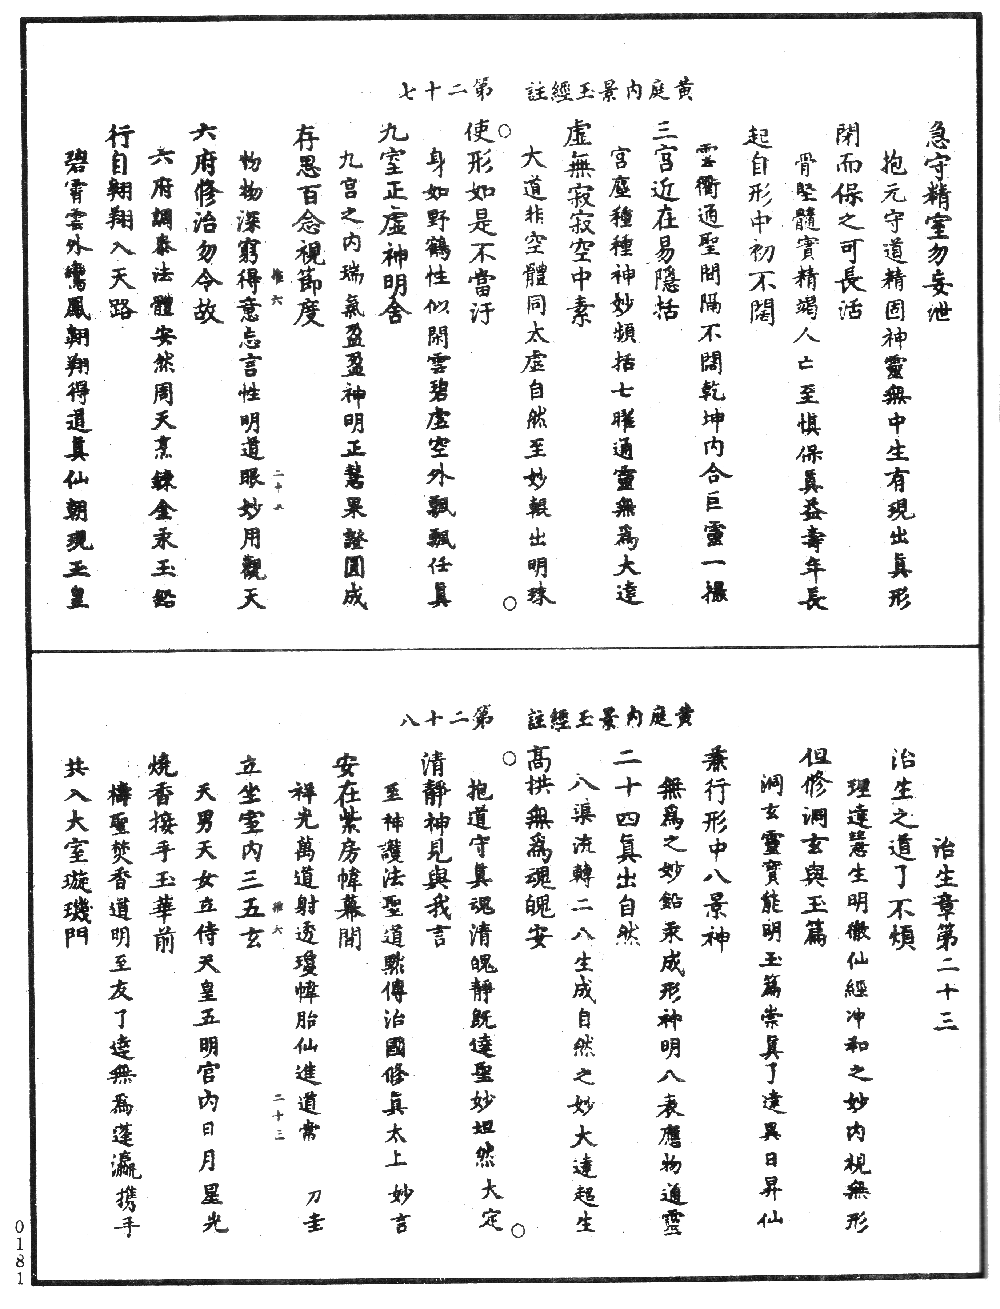 黄庭内景玉經註　第二十七
急守精室勿妄泄
抱元守道精固神靈無中生有現出真形
閉而保之可長活
骨堅髓實精竭人亡至慎保真益壽年長
起自形中初不闊
雲衢通聖問隔不闊乾坤内合巨靈一撮
三宫近在易隱括
宫庭種種神妙頻括七曜通靈無爲大達
虚無寂寂空中素
大道非空體同太虚自然至妙報出明珠
使形如是不當汙
身如野鶴性似閑雲碧虚空外飄飄任真
九室正虚神明舍
九宫之内瑞氣盈盈神明正慧果證圓成
存思百念視節度
推六
二十二
物物深窮得意忘言性明道眼妙用觀天
六府修治勿令故
六府調泰法體安然周天烹鍊金汞玉鉛
行自翱翔入天路
碧霄雲外鸞鳳翱翔得道真仙朝現玉皇
黄庭内景玉經註　第二十八
治生章第二十三
治生之道了不煩
理達慧生明徹仙經冲和之妙内視無形
但修洞玄與玉篇
洞玄靈寳能明玉篇崇真了達異日昇仙
兼行形中八景神
無爲之妙鉛汞成形神明八表應物通靈
二十四真出自然
八渠流轉二八生成自然之妙大達超生
高拱無爲魂魄安
抱道守真魂清魄靜既達聖妙坦然大定
清靜神見與我言
至神護法聖道默傳治國修真太上妙言
安在紫房幃幕間
祥光萬道射透瓊幃胎仙進道常　刀圭
推六
二十三
立坐室内三五玄
天男天女立侍天皇五明宫内日月星光
燒香接手玉華前
禱聖焚香道明至友了達無爲蓬瀛攜手
共入大室璇璣門
0181